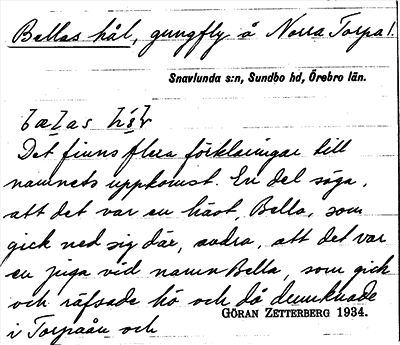 Bellas hål, gungfly å Norra Torpa!.
Snavlunda s:n, Sundbo hd, Örebro län.
Det finns flera förklaringar till
namnets uppkomst. En del säga,
att det var en häst, Bella, som
gick ned sig där, andra, att det var
en piga vid namn Bella, som gick
och räfsade hö och då drunknade
GÖRAN ZETTERBERG 1934.
i Torpaån och